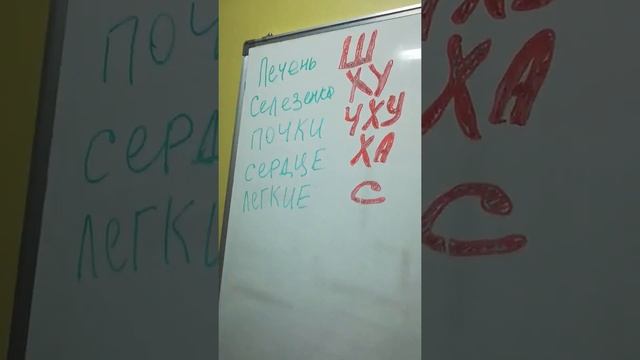 Печень Ш
Селезенка ХУ
ПОЧКИ ЧХУ
СЕРДЦЕ ХА
ЛЕГКИЕ С